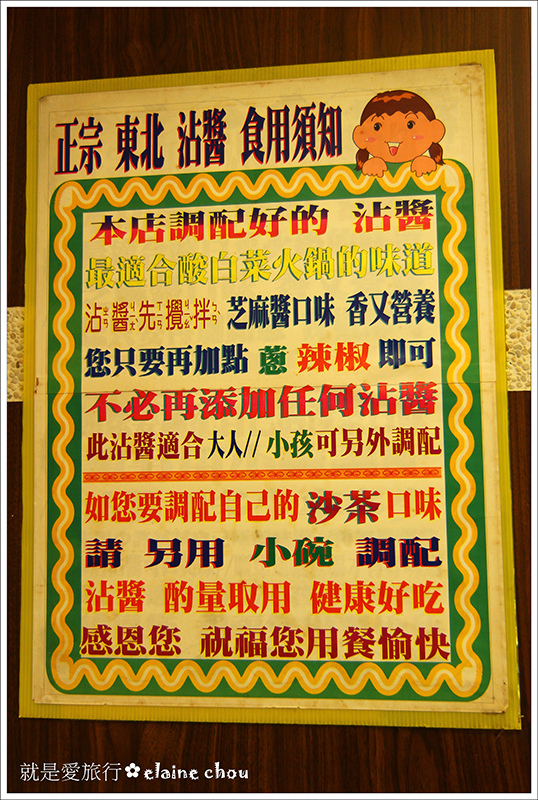 正宗 東北 沾醬 食用須知
本店調配好的 沾醬
最適合酸白菜火鍋的味道
沾醬先攪拌 芝麻醬口味 香又營養
您只要再加點 蔥 辣椒 即可
不必再添加任何沾醬
此沾醬適合大人// 小孩可另外調配
如您要調配自己的 沙茶 口味
請 另用 小碗 調配
沾醬 酌量取用 健康好吃
感恩您 祝福您用餐愉快
就是愛旅行✿elaine chou